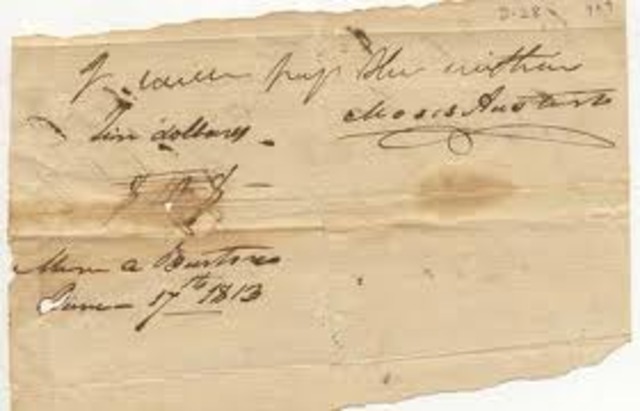 D-28
I will pay the within
Ten dollars
Moses Austin
Mine a Burton
June 17th 1813